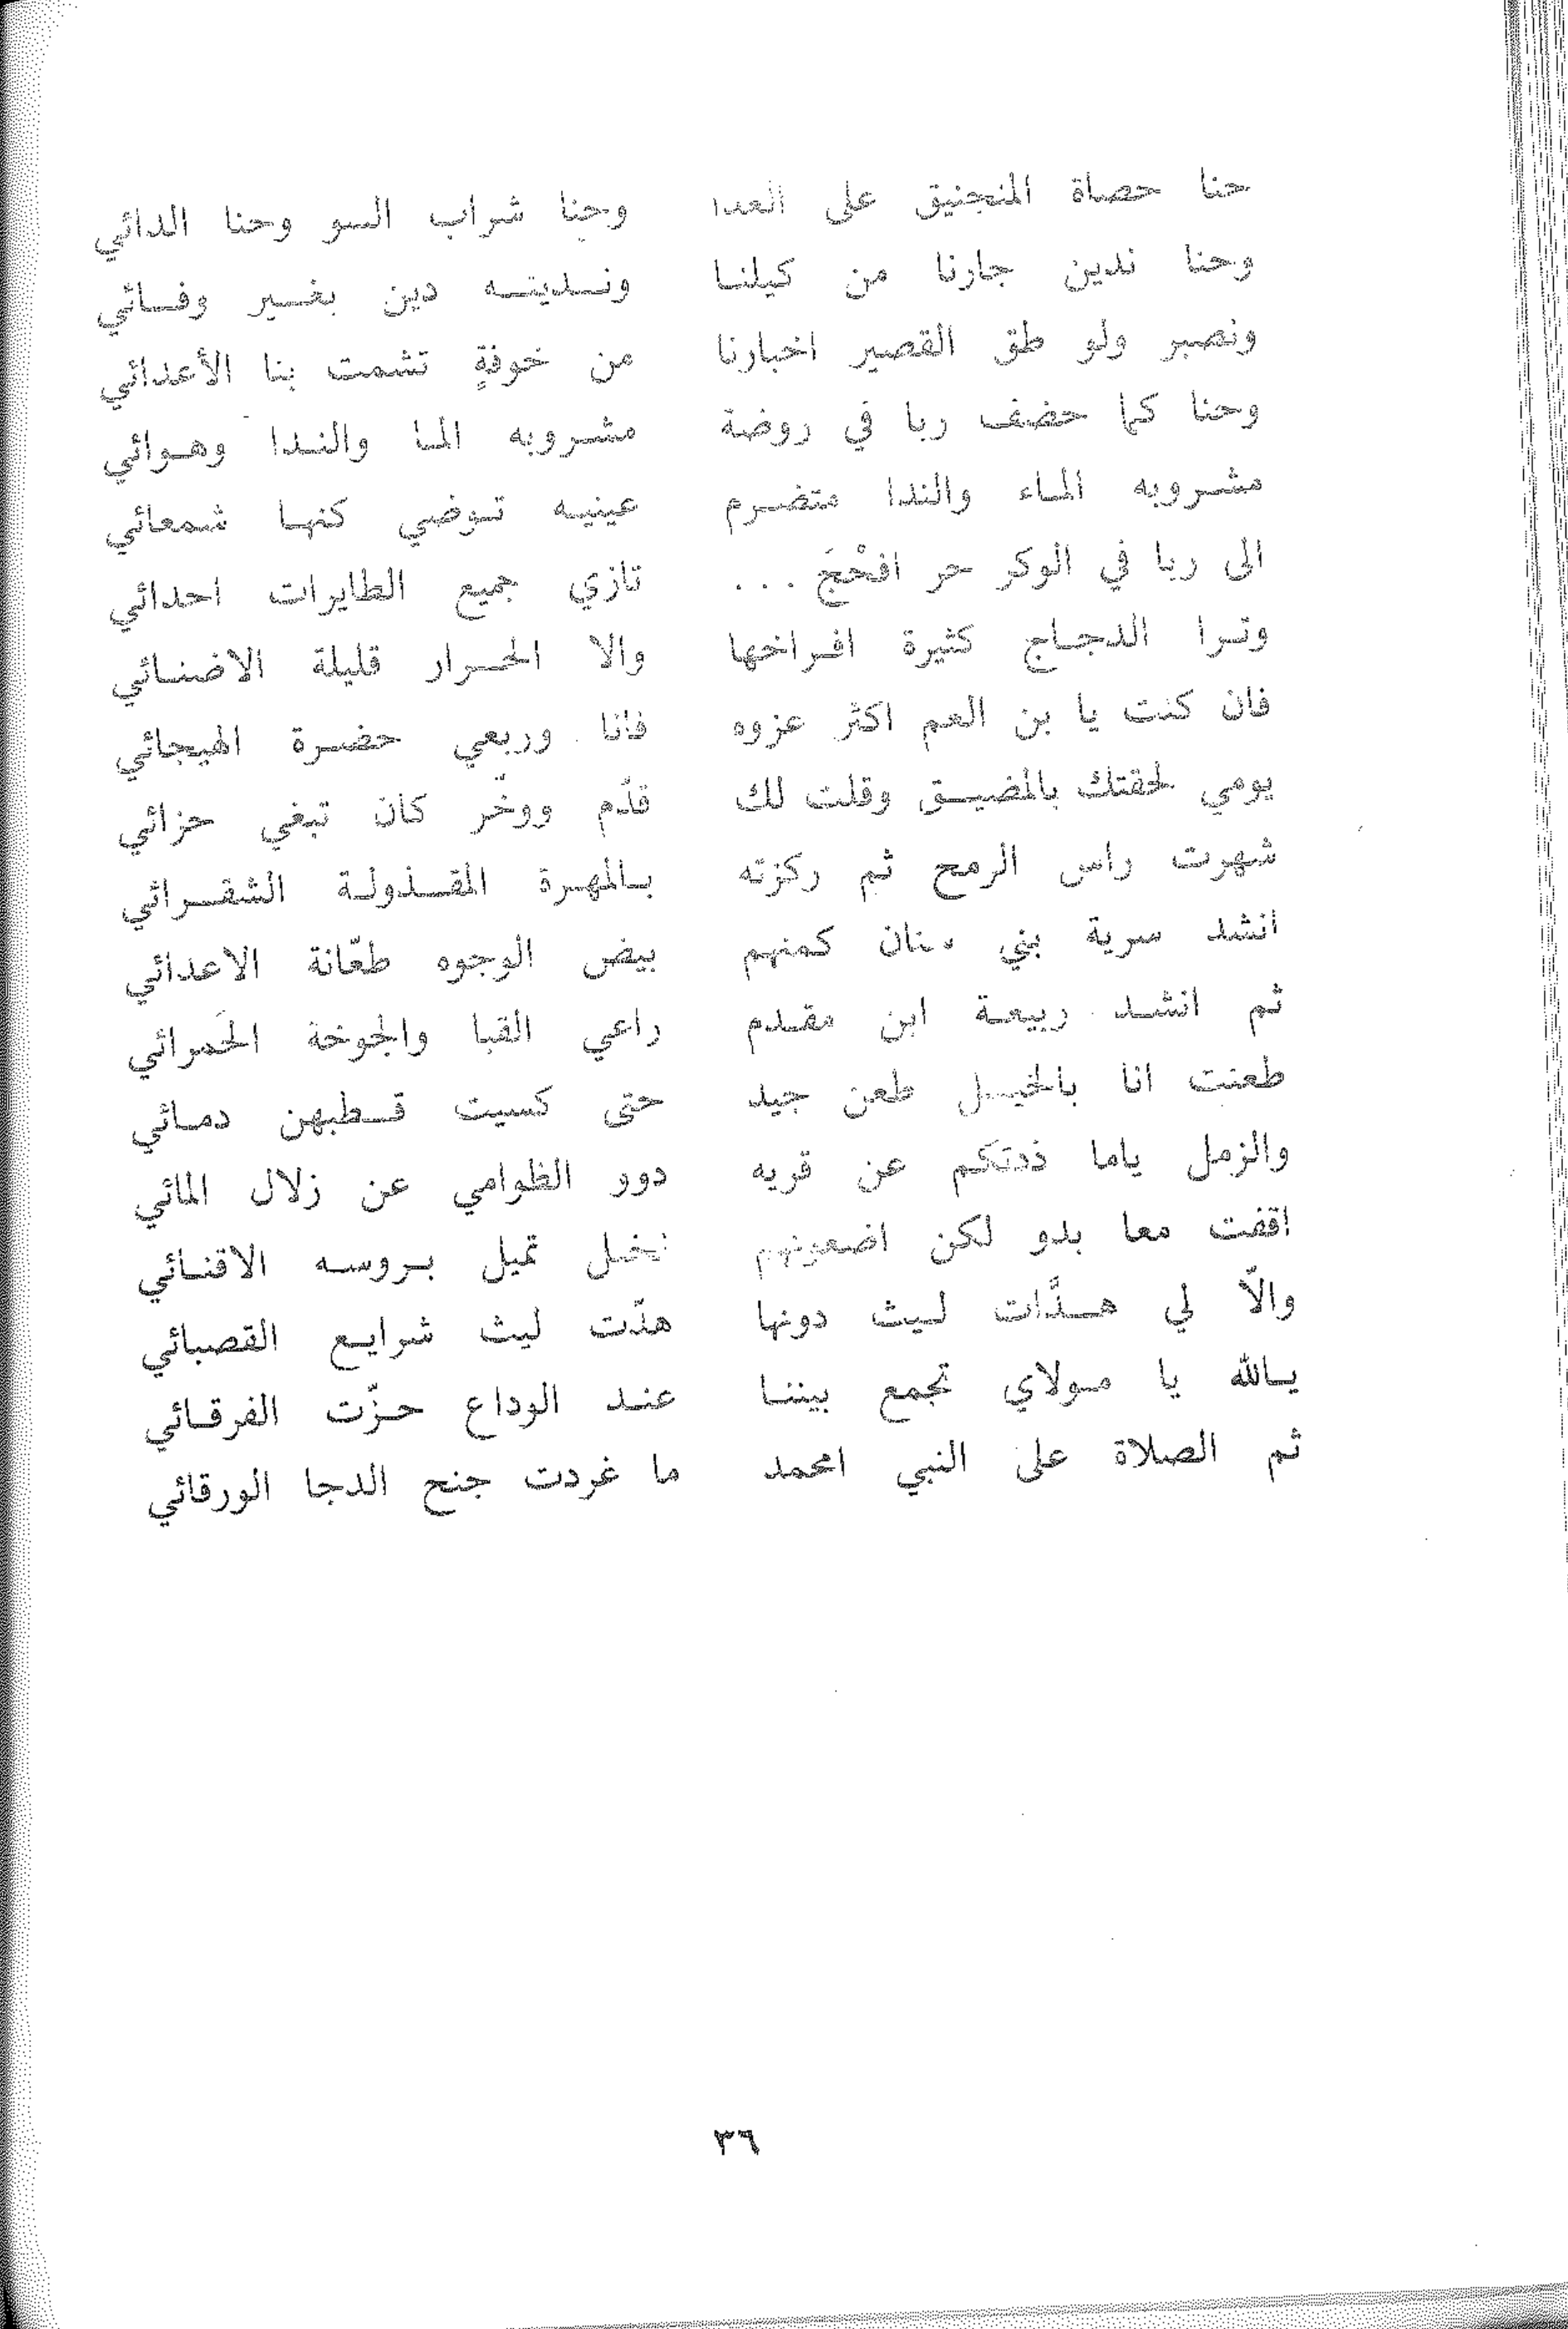 حنا حصاة المنجنيق على العدا وحنا شراب السو وحنا الدائي
وحنا ندين جارنا من كيلنا ونديته دين بغير وفائي
ونصبر ولو طق القصير اخبارنا من خوفةٍ تشمت بنا الأعدائي
وحنا كما حضف ربا في روضة مشروبه الما والندا وهوائي
مشروبه الماء والندا متضرم عينيه توضي كنها شمعائي
الى ربا في الوكر حر افحْجَ ... تازي جميع الطايرات احدائي
وترا الدجاج كثيرة افراخها والا الحرار قليلة الاضنائي
فان كنت يا بن العم اكثر عزوه فانا وربعي حضرة الهيجائي
يومي لحقتك بالمضيق وقلت لك قدّم ووخّر كان تبغي حزائي
شهرت راس الرمح ثم ركزته بالمهرة المقذولة الشقرائي
انشد سرية بني سنان كمنهم بيض الوجوه طعّانة الاعدائي
ثم انشد ربيعة ابن مقدم راعي القبا والجوخة الحَمرائي
طعنت انا بالخيل طعن جيد حتى كسيت قطبهن دمائي
والزمل ياما ذدتكم عن قربه دوو الظوامي عن زلال المائي
اقفت معا بدو لكن اضعونهم نخل تميل بروسه الاقنائي
والاّ لي هدَّات ليث دونها هدّت ليث شرايع القصبائي
يالله يا مولاي تجمع بيننا عند الوداع حزّت الفرقائي
ثم الصلاة على النبي امحمد ما غردت جنح الدجا الورقائي
٣٦